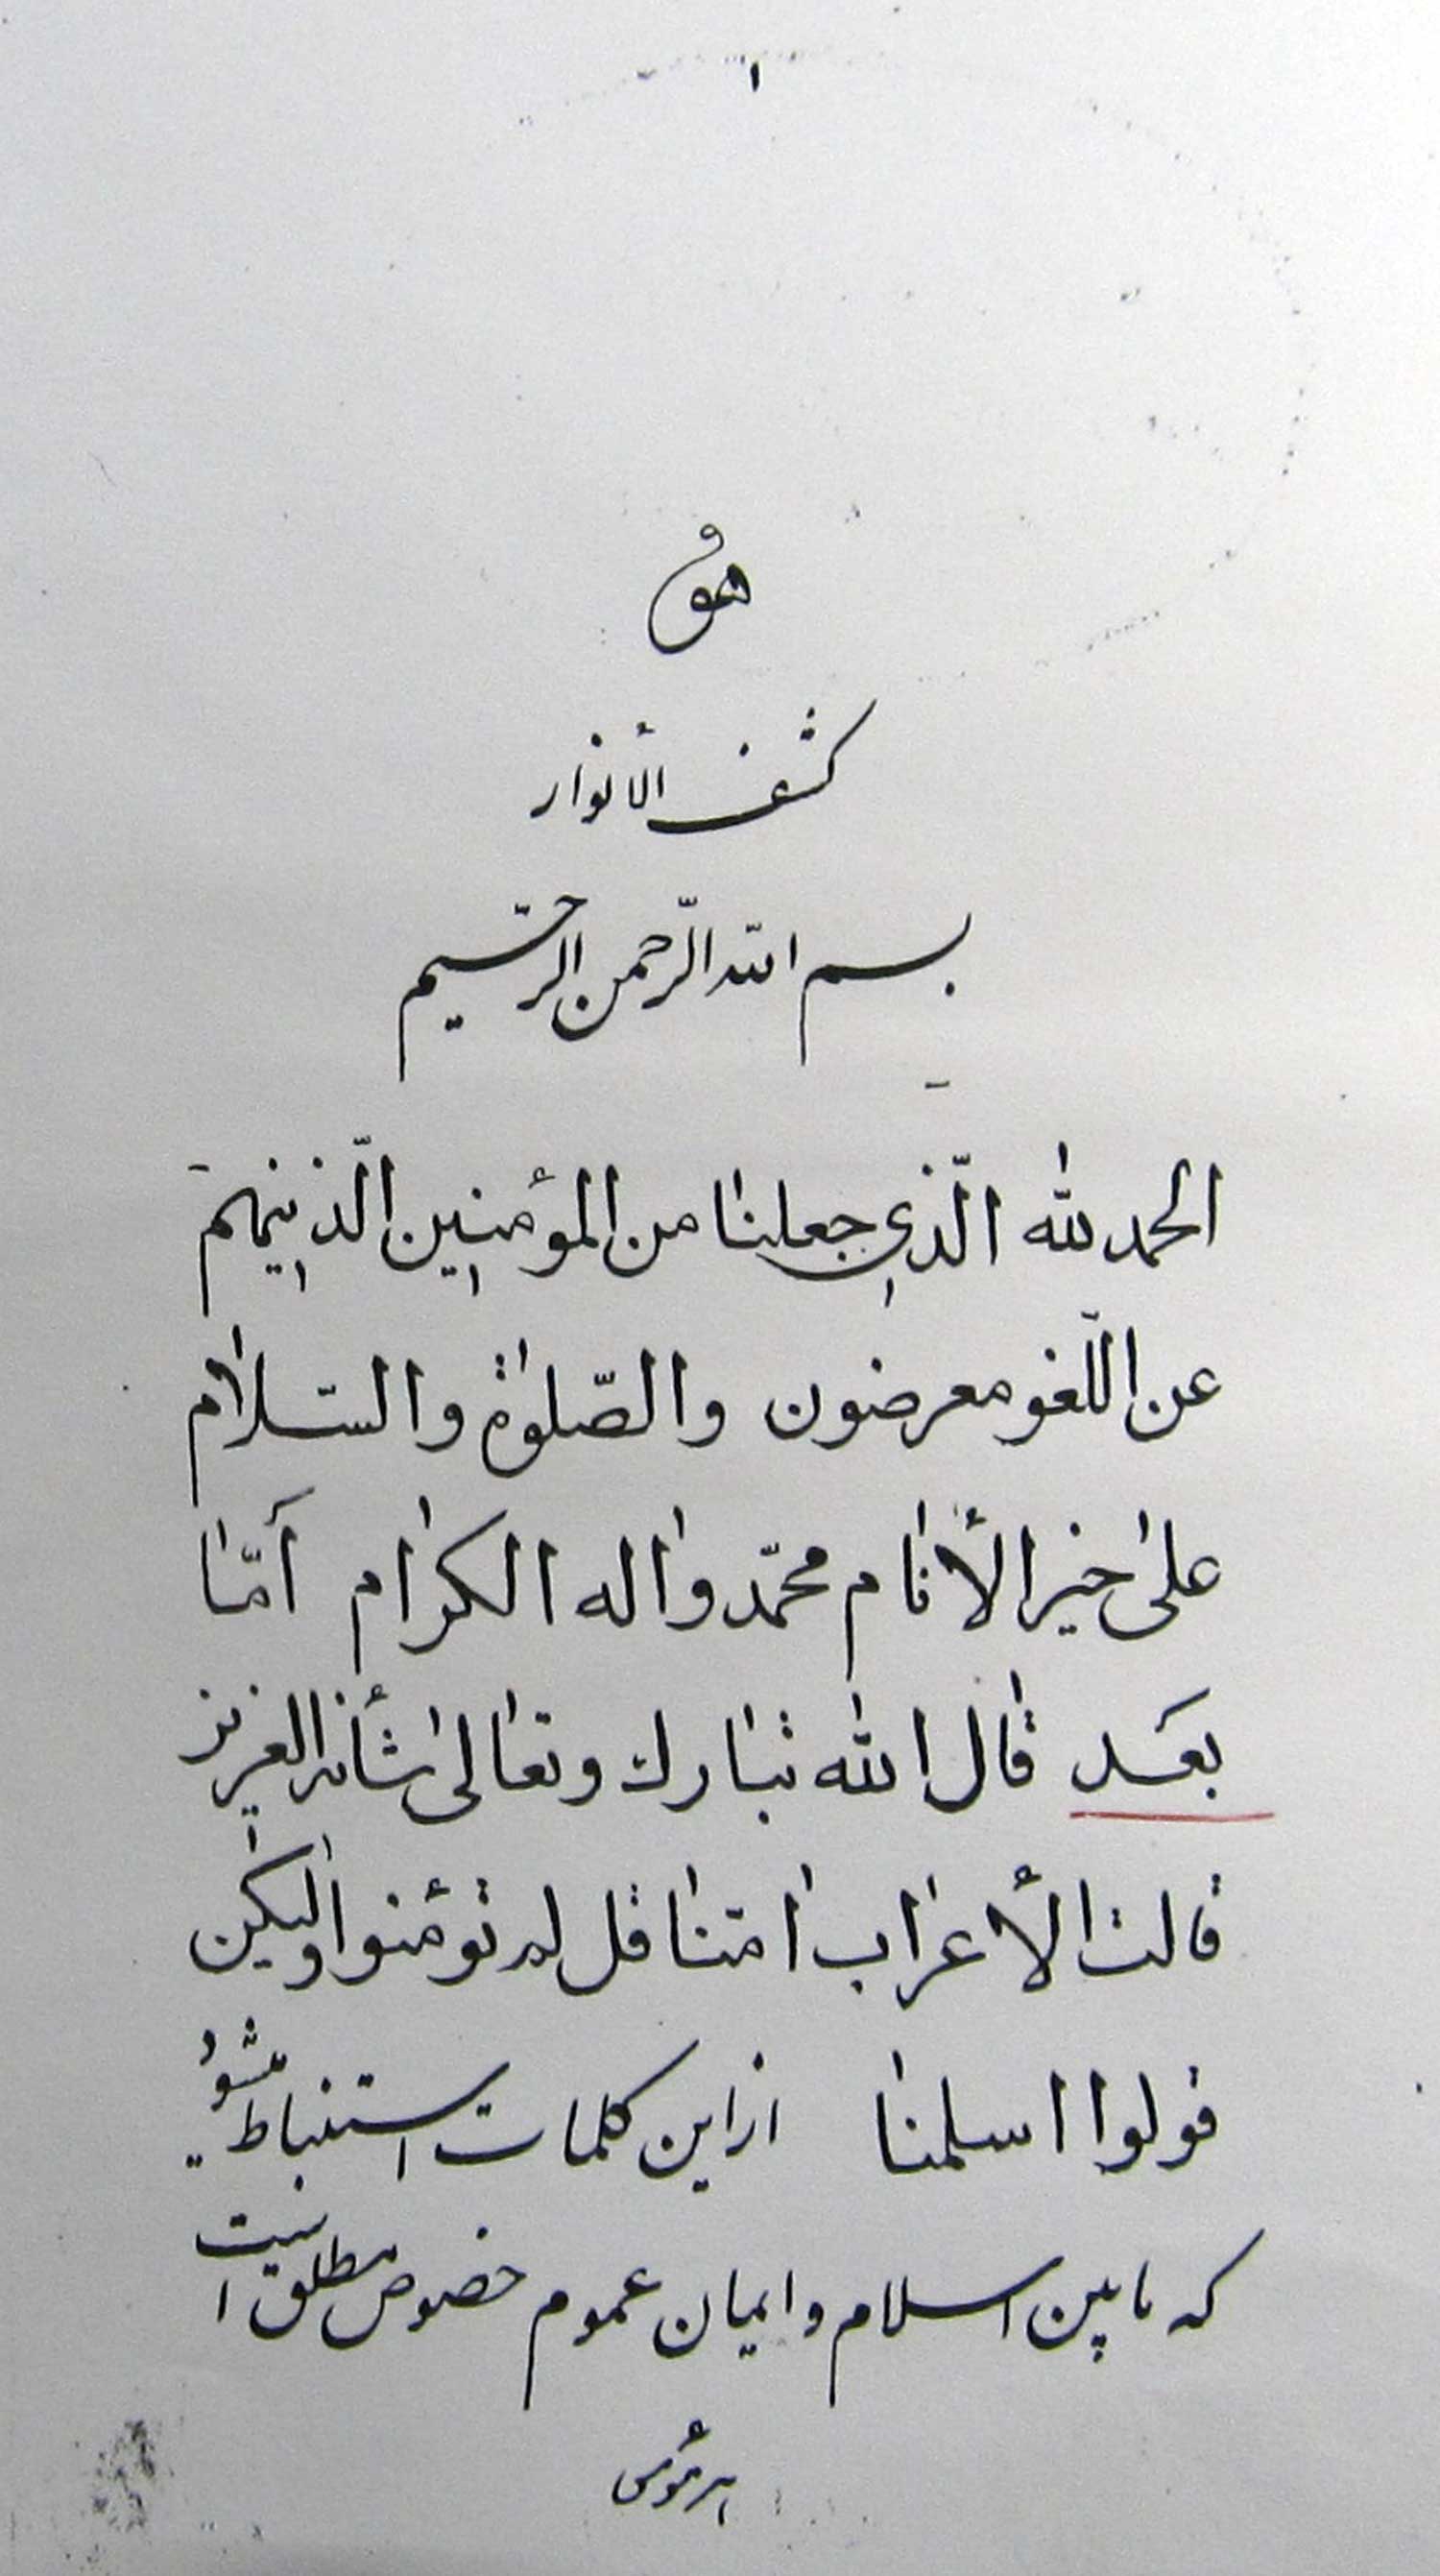 ۱
هو
كشف الأنوار
بسم الله الرّحمن الرّحیم
الحمد لله الّذي جعلنا من المؤمنین الّذینهم
عن اللّغو معرضون والصّلوة والسّلام
علی خیر الأنام محمّد واله الکرام أمّا
بعد قال الله تبارك وتعالی شأنه العزیز
قالت الأعراب امنّا قل لم تؤمنوا ولکن
قولوا اسلمنا از این کلمات استنباط میشود
که مابین اسلام و ایمان عموم خصوص مطلق است
هر مؤمن